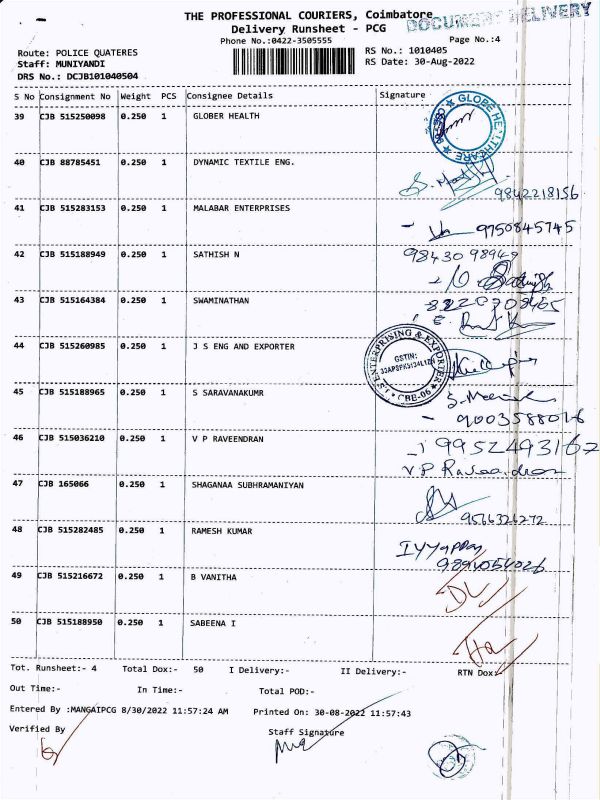 THE PROFESSIONAL COURIERS, Coimbatore
DOCUMENT DELIVERY
Delivery Runsheet - PCG
Phone No.:0422-3505555
Page No.:4
Route: POLICE QUATERES
RS No.: 1010405
Staff: MUNIYANDI
RS Date: 30-Aug-2022
DRS No.: DCJB101040504
S No Consignment No Weight PCS Consignee Details Signature
39 CJB 515250098 0.250 1 GLOBER HEALTH
GLOBE HEALTHCARE
40 CJB 88785451 0.250 1 DYNAMIC TEXTILE ENG.
9842218156
41 CJB 515283153 0.250 1 MALABAR ENTERPRISES
9750845745
42 CJB 515188949 0.250 1 SATHISH N
98430 98949
43 CJB 515164384 0.250 1 SWAMINATHAN
44 CJB 515260985 0.250 1 J S ENG AND EXPORTER
ENTERPRISING & EXPORTER
GSTIN:
CBE-06
45 CJB 515188965 0.250 1 S SARAVANAKUMR
46 CJB 515036210 0.250 1 V P RAVEENDRAN
9952493167
V.P Raveendran
47 CJB 165066 0.250 1 SHAGANAA SUBHRAMANIYAN
9566326272
48 CJB 515282485 0.250 1 RAMESH KUMAR
IYYappan
49 CJB 515216672 0.250 1 B VANITHA
50 CJB 515188950 0.250 1 SABEENA I
Tot. Runsheet:- 4 Total Dox:- 50 I Delivery:- II Delivery:- RTN Dox:
Out Time:- In Time:- Total POD:-
Entered By :MANGAIPCG 8/30/2022 11:57:24 AM Printed On: 30-08-2022 11:57:43
Verified By Staff Signature